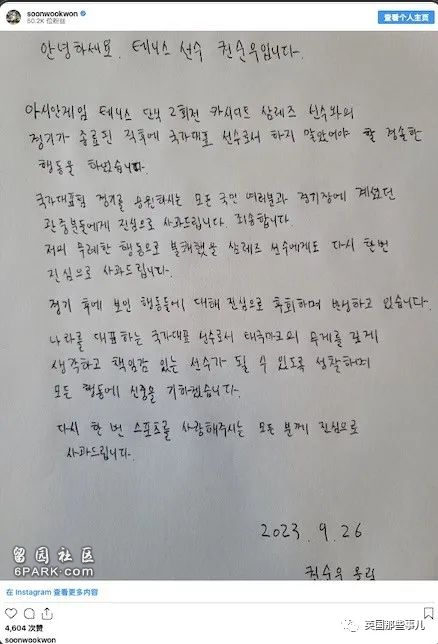 soonwookwon
50.2K 位粉丝
查看个人主页
안녕하세요. 테니스 선수 권순우입니다.
아시안게임 테니스 단식 2회전 카시디트 삼레즈 선수와의
경기가 종료된 직후에 국가대표 선수로서 하지 말았어야 할 경솔한
행동을 하였습니다.
국가대표팀 경기를 응원하시는 모든 국민 여러분과 경기장에 계셨던
관중분들에게 진심으로 사과드립니다. 죄송합니다.
저의 무례한 행동으로 불쾌했을 삼레즈 선수에게도 다시 한번
진심으로 사과드립니다.
경기 후에 보인 행동들에 대해 진심으로 후회하며 반성하고 있습니다.
나라를 대표하는 국가대표 선수로서 태극마크의 무게를 깊게
생각하고 책임감 있는 선수가 될 수 있도록 성찰하며
모든 행동에 신중을 기하겠습니다.
다시 한 번 스포츠를 사랑해주시는 모든 분께 진심으로
사과드립니다.
2023. 9. 26
권순우 올림
留园社区
6PARK.com
在 Instagram 查看更多内容
4,604 次赞
英国那些事儿
soonwookwon